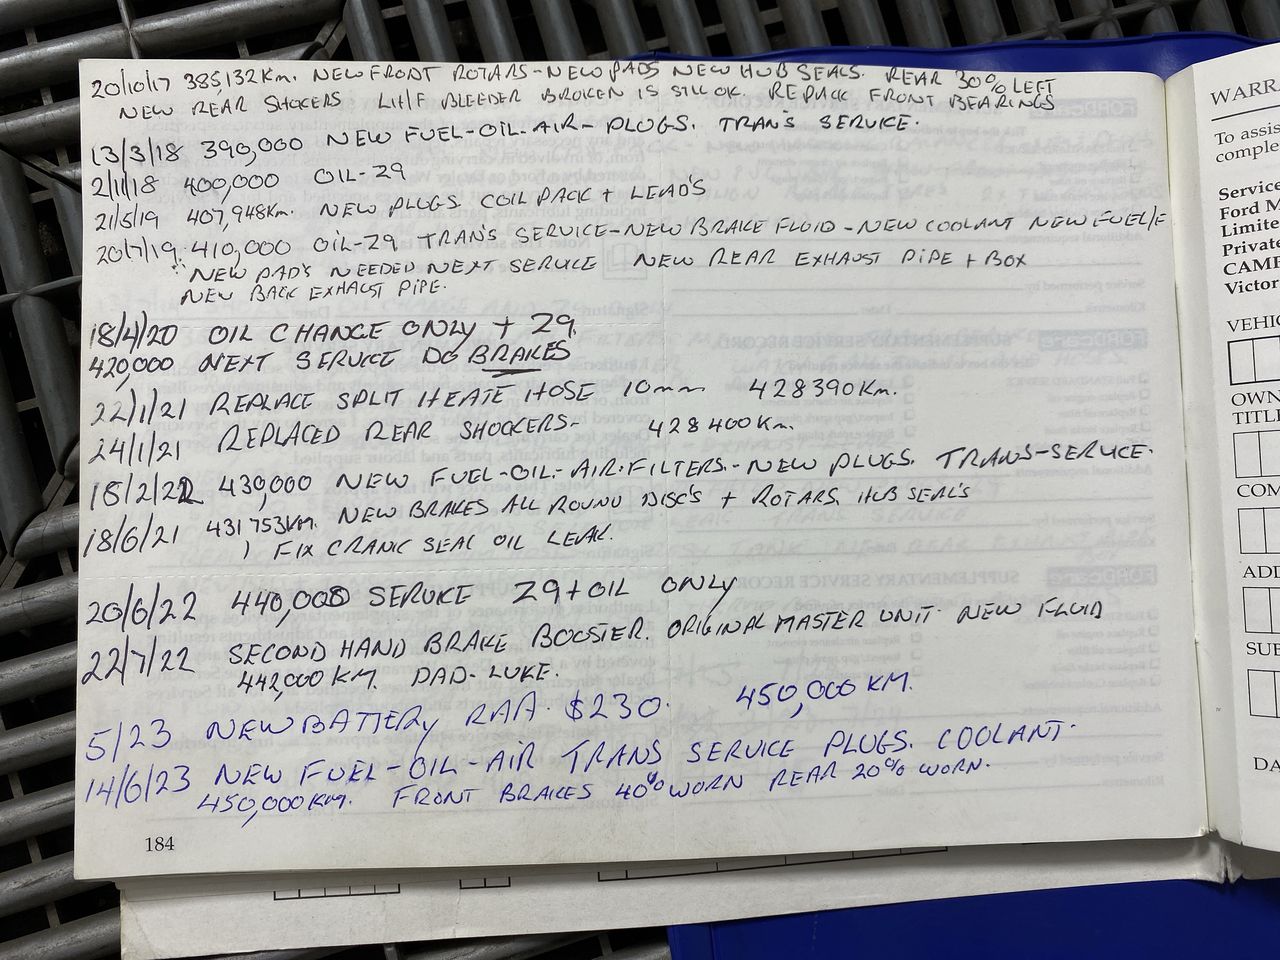 20/10/17 385,132 Km. NEW FRONT ROTARS - NEW PADS NEW HUB SEALS. REAR 30% LEFT
NEW REAR SHOCKERS LH/F BLEEDER BROKEN IS STILL OK. REPACK FRONT BEARINGS
13/3/18 390,000 NEW FUEL-OIL-AIR- PLUGS. TRAN'S SERVICE.
2/11/18 400,000 OIL-Z9
21/5/19 407,948 Km. NEW PLUGS COIL PACK + LEAD'S
20/7/19 410,000 OIL-Z9 TRAN'S SERVICE-NEW BRAKE FLUID-NEW COOLANT NEW FUEL/F
NEW PAD'S NEEDED NEXT SERVICE NEW REAR EXHAUST PIPE + BOX
NEW BACK EXHAUST PIPE.
18/4/20 OIL CHANGE ONLY + Z9.
420,000 NEXT SERVICE DO BRAKES
22/1/21 REPLACE SPLIT HEATE HOSE 10mm 428390 Km.
24/1/21 REPLACED REAR SHOCKERS- 428400 Km.
18/2/22 430,000 NEW FUEL-OIL-AIR.FILTERS.-NEW PLUGS. TRANS-SERVICE.
18/6/21 431753 KM. NEW BRAKES ALL ROUND DISC'S + ROTARS, HUB SEAL'S
) FIX CRANK SEAL OIL LEAK.
20/6/22 440,000 SERVICE Z9 + OIL ONLY
22/7/22 SECOND HAND BRAKE BOOSTER. ORIGINAL MASTER UNIT. NEW FLUID
442,000 KM. DAD-LUKE.
5/23 NEW BATTERY RAA. $230. 450,000 KM.
14/6/23 NEW FUEL-OIL-AIR TRANS SERVICE PLUGS. COOLANT.
450,000 KM. FRONT BRAKES 40% WORN REAR 20% WORN.
184
WARRA
To assis
comple
Service
Ford M
Limite
Private
CAMP
Victor
VEHIC
OWN
TITLE
COM
ADD
SUB
DA